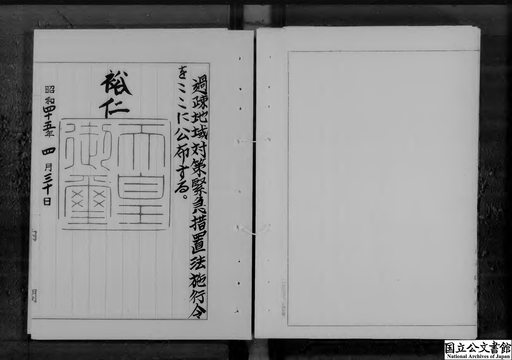 過疎地域対策緊急措置法施行令
をここに公布する。
裕仁
天皇
御璽
昭和四十五年四月三十日
国立公文書館
National Archives of Japan